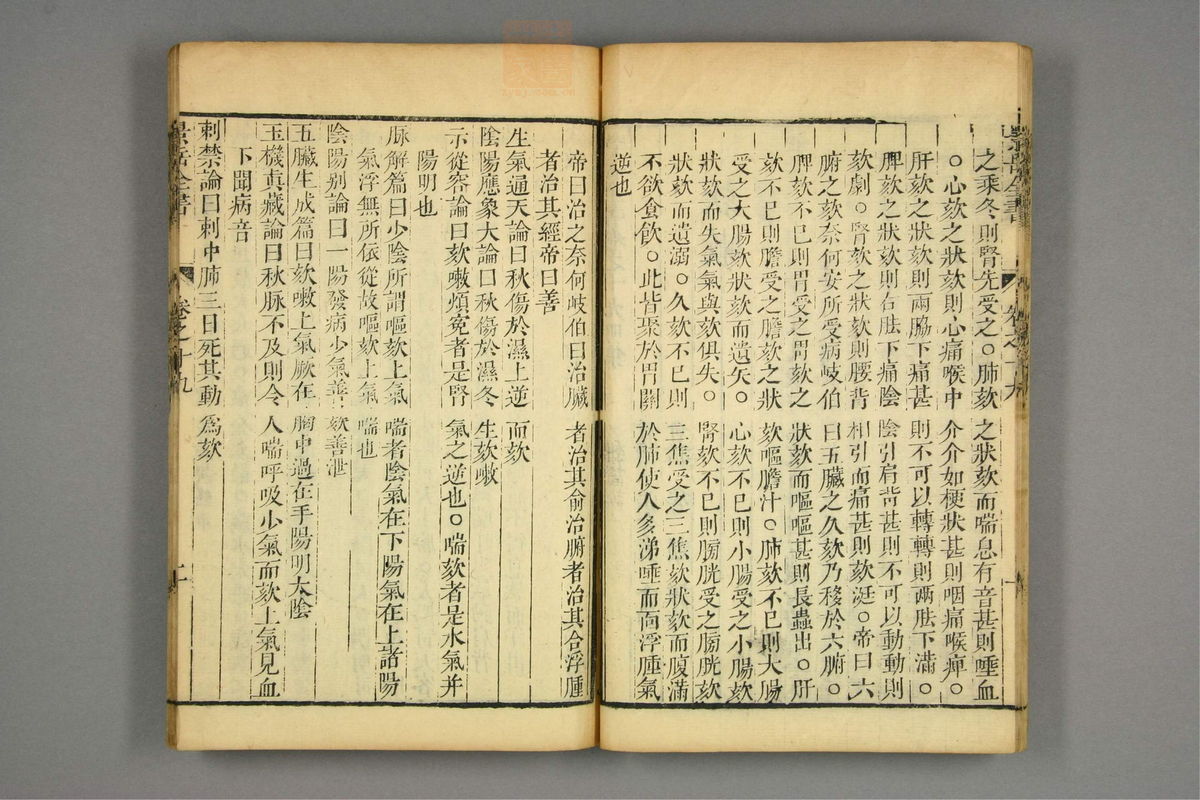 之乘冬則腎先受之○肺欬之狀欬而喘息有音甚則唾血
○心欬之狀欬則心痛喉中介介如梗狀甚則咽痛喉痺○
肝欬之狀欬則兩脇下痛甚則不可以轉轉則两胠下滿○
脾欬之狀欬則右胠下痛陰陰引肩背甚則不可以動動則
欬劇○腎欬之狀欬則腰背相引而痛甚則欬涎○帝曰六
腑之欬奈何安所受病岐伯曰五臟之久欬乃移於六腑○
脾欬不已則胃受之胃欬之狀欬而嘔嘔甚則長蟲出○肝
欬不已則膽受之膽欬之狀欬嘔膽汁○肺欬不已則大腸
受之大腸欬狀欬而遺矢○心欬不已則小腸受之小腸欬
狀欬而失氣氣與欬俱失○腎欬不已則膀胱受之膀胱欬
狀欬而遺溺○久欬不已則三焦受之三焦欬狀欬而腹滿
不欲食飲○此皆聚於胃關於肺使人多涕唾而面浮腫氣
逆也
帝曰治之奈何岐伯曰治臟者治其俞治腑者治其合浮腫
者治其經帝曰善
生氣通天論曰秋傷於濕上逆而欬
陰陽應象大論曰秋傷於濕冬生欬嗽
示從容論曰欬嗽煩冤者是腎氣之逆也○喘欬者是水氣并
陽明也
脉解篇曰少陰所謂嘔欬上氣喘者陰氣在下陽氣在上諸陽
氣浮無所依從故嘔欬上氣喘也
陰陽别論曰一陽發病少氣善欬善泄
五臟生成篇曰欬嗽上氣厥在胸中過在手陽明太陰
玉機真藏論曰秋脉不及則令人喘呼吸少氣而欬上氣見血
下聞病音
刺禁論曰刺中肺三日死其動爲欬
景岳全書
卷之十九